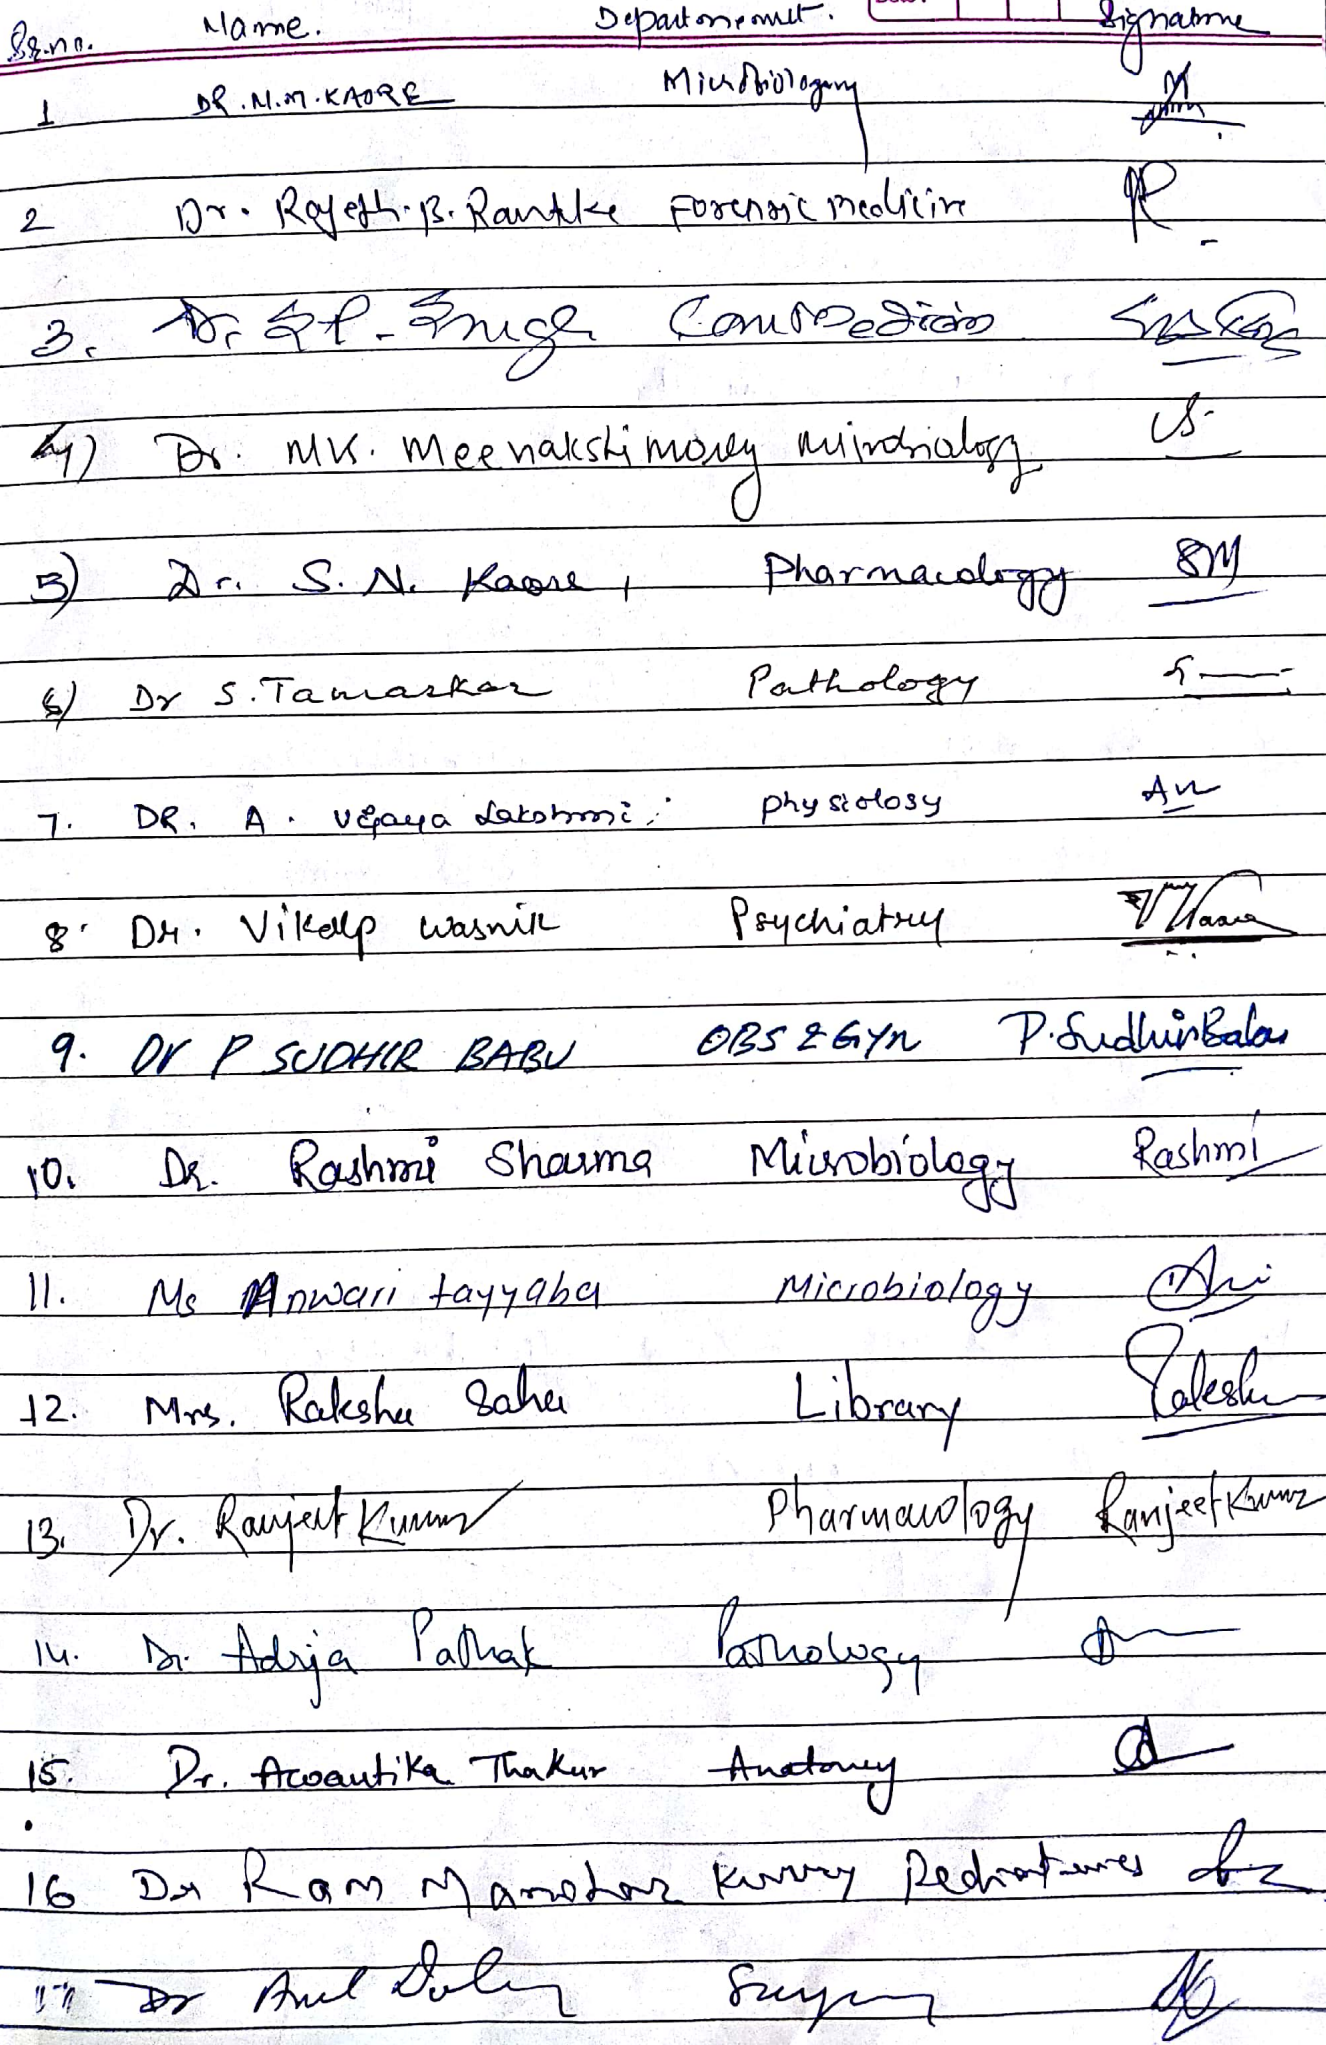 Sr.no. Name. Department. Signature
1 DR. M.M. KAORE Microbiology
2 Dr. Rajesh. B. Forensic Medicine
3. Dr. S.P. Singh Com Medicine
4) Dr. Mrs. Meenakshi morey microbiology
5) Dr. S. N. Kaore, Pharmacology SM
6) Dr S. Tamaskar Pathology
7. DR. A. Vijaya Lakshmi physiology
8. Dr. Vikalp Wasnik Psychiatry
9. Dr P SUDHIR BABU OBS & Gyn P. Sudhir Babu
10. Dr. Rashmi Sharma Microbiology Rashmi
11. Ms Anwari tayyaba Microbiology
12. Mrs. Raksha Saha Library
13. Dr. Ranjeet Kumar Pharmacology Ranjeet Kumar
14. Dr. Adrija Pathak Pathology
15. Dr. Awantika Thakur Anatomy
16 Dr Ram Manohar Pediatrics
17 Dr Anil